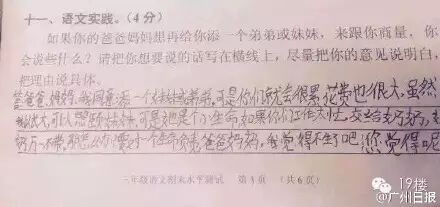 十一、语文实践。(4分)
如果你的爸爸妈妈想再给你添一个弟弟或妹妹，来跟你商量，你
会说些什么？请把你想要说的话写在横线上，尽量把你的意见说明白，
把理由说具体。
答爸爸、妈妈，我同意添一个妹妹或弟弟，可是你们就会很累花费也很大，虽然
可以照顾妹妹，可是她是个小生命，如果你们工作太忙，交给奶奶，
要对一个生命负责爸爸妈妈，我觉得不生了吧您觉得呢
三年级语文期末水平测试 第4页 (共6页)
19楼
@广州日报